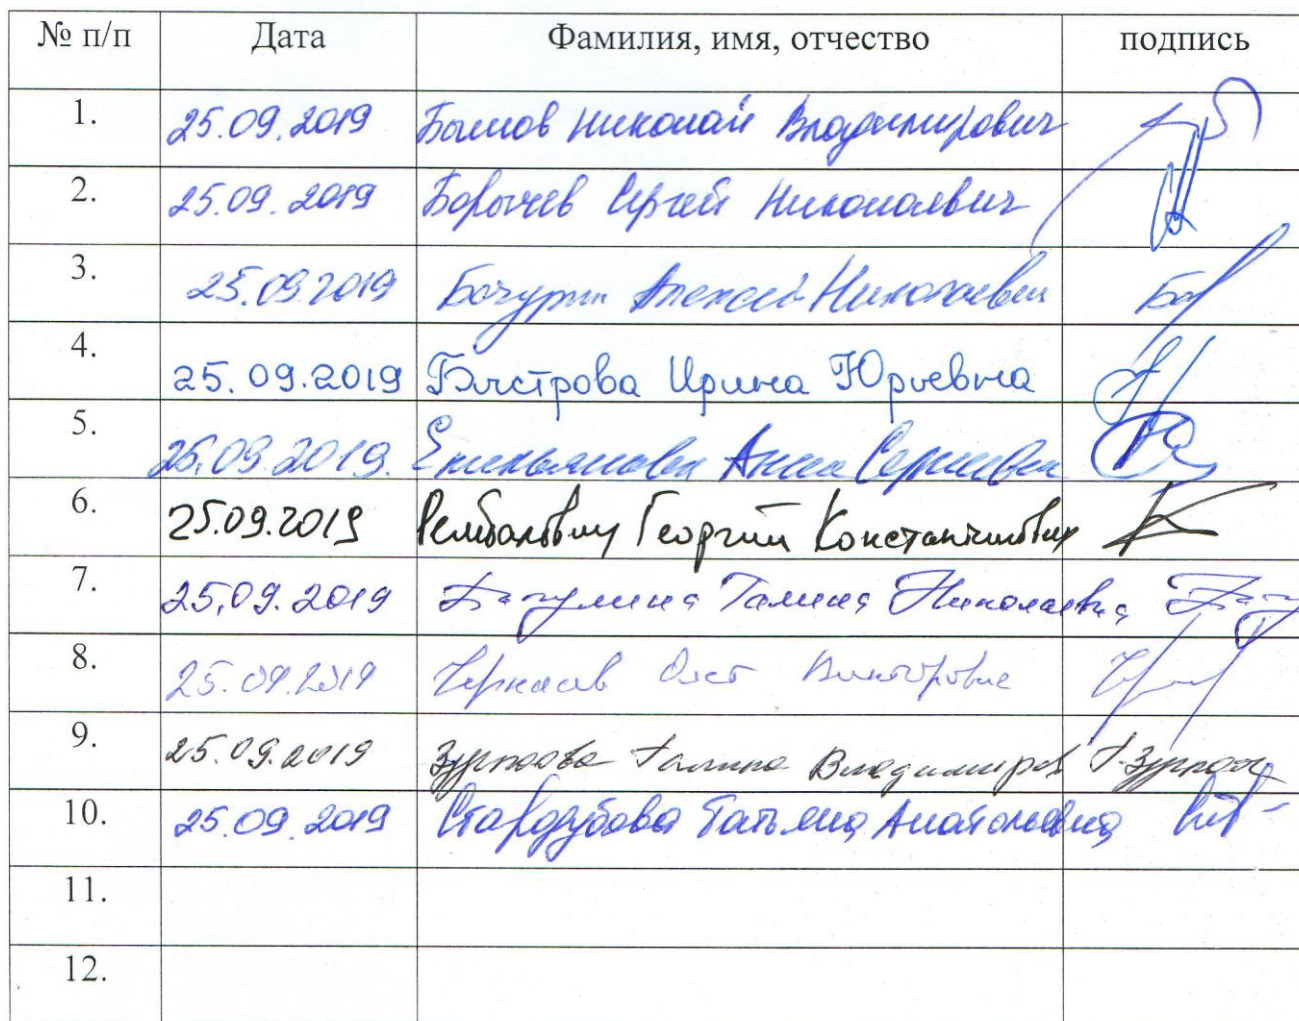 № п/п Дата Фамилия, имя, отчество подпись
1. 25.09.2019 Бышов Николай Владимирович
2. 25.09.2019 Борычев Сергей Николаевич
3. 25.09.2019 Бачурин Алексей Николаевич
4. 25.09.2019 Быстрова Ирина Юрьевна
5. 25.09.2019. Емельянова Анна Сергеевна
6. 25.09.2019 Рембалович Георгий Константинович
7. 25.09.2019 Галина Николаевна
8. 25.09.2019 Черкасов Олег Викторович
9. 25.09.2019 Галина Владимиров
10. 25.09.2019 Стародубова Татьяна Анатольевна
11.
12.